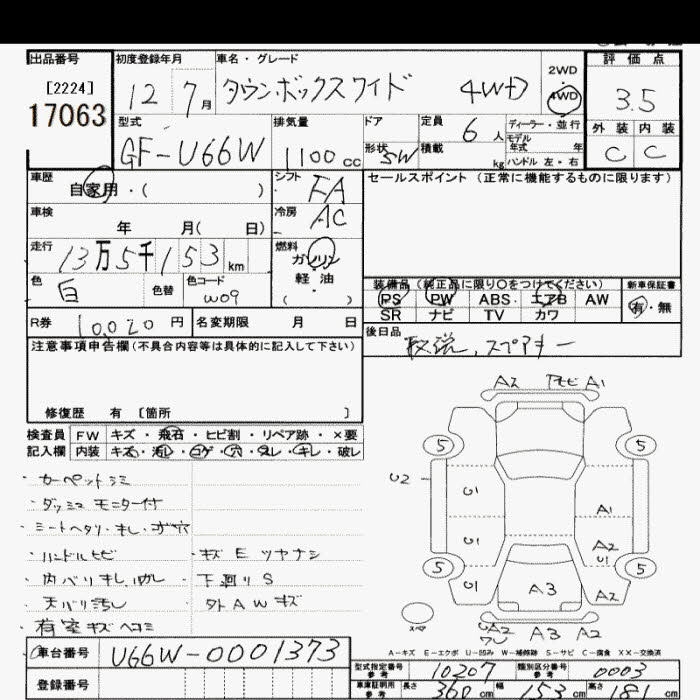 出品番号 初度登録年月 車名・グレード 評価点
[2224]
17063
12 7月 タウンボックスワイド 4WD
2WD
4WD
3.5
型式 排気量 ドア 定員 6人 ディーラー・並行 外装 内装
モデル年式 年
GF-U66W 1100cc 形状 5W 積載 kg ハンドル 左・右 C C
車歴 自家用・( ) シフト FA セールスポイント (正常に機能するものに限ります)
車検 年 月( 日) 冷房 AC
走行 13万5千153km 燃料 ガソリン
軽・油
( )
色 白 色替 色コード W09
装備品(純正品に限り〇をつけてください) 新車保証書
PS PW ABS エアB AW 有・無
SR ナビ TV カワ
R券 10,020円 名変期限 月 日
後日品 取説、スペアキー
注意事項申告欄(不具合内容等は具体的に記入して下さい)
修復歴 有 [箇所 ]
検査員 FW キズ・飛石・ヒビ割・リペア跡・×要
記入欄 内装 キズ・汚れ・コゲ・穴・スレ・キレ・破レ
・カーペットシミ
・ダッシュ モニター付
・シートヘタリ・キレ・コゲ穴
・ハンドルヒビ ・キズ E ツヤナシ
・内バリキレ、 ・下廻りS
・天バリ汚れ ・外AWキズ
・荷室キズヘコミ
A2 A1
5 5
U2 U1
A1
U1 A2
U1
5 5
U1 A3 A2
スペア
UA2 A3 A2
A-キズ E-エクボ U-凹み W-補修跡 S-サビ C-腐食 XX-交換済
車台番号 U66W-0001373
型式指定番号 参考 10207 類別区分番号 参考 0003
登録番号
車庫証明用 参考 長さ 360cm 幅 153cm 高さ 181cm